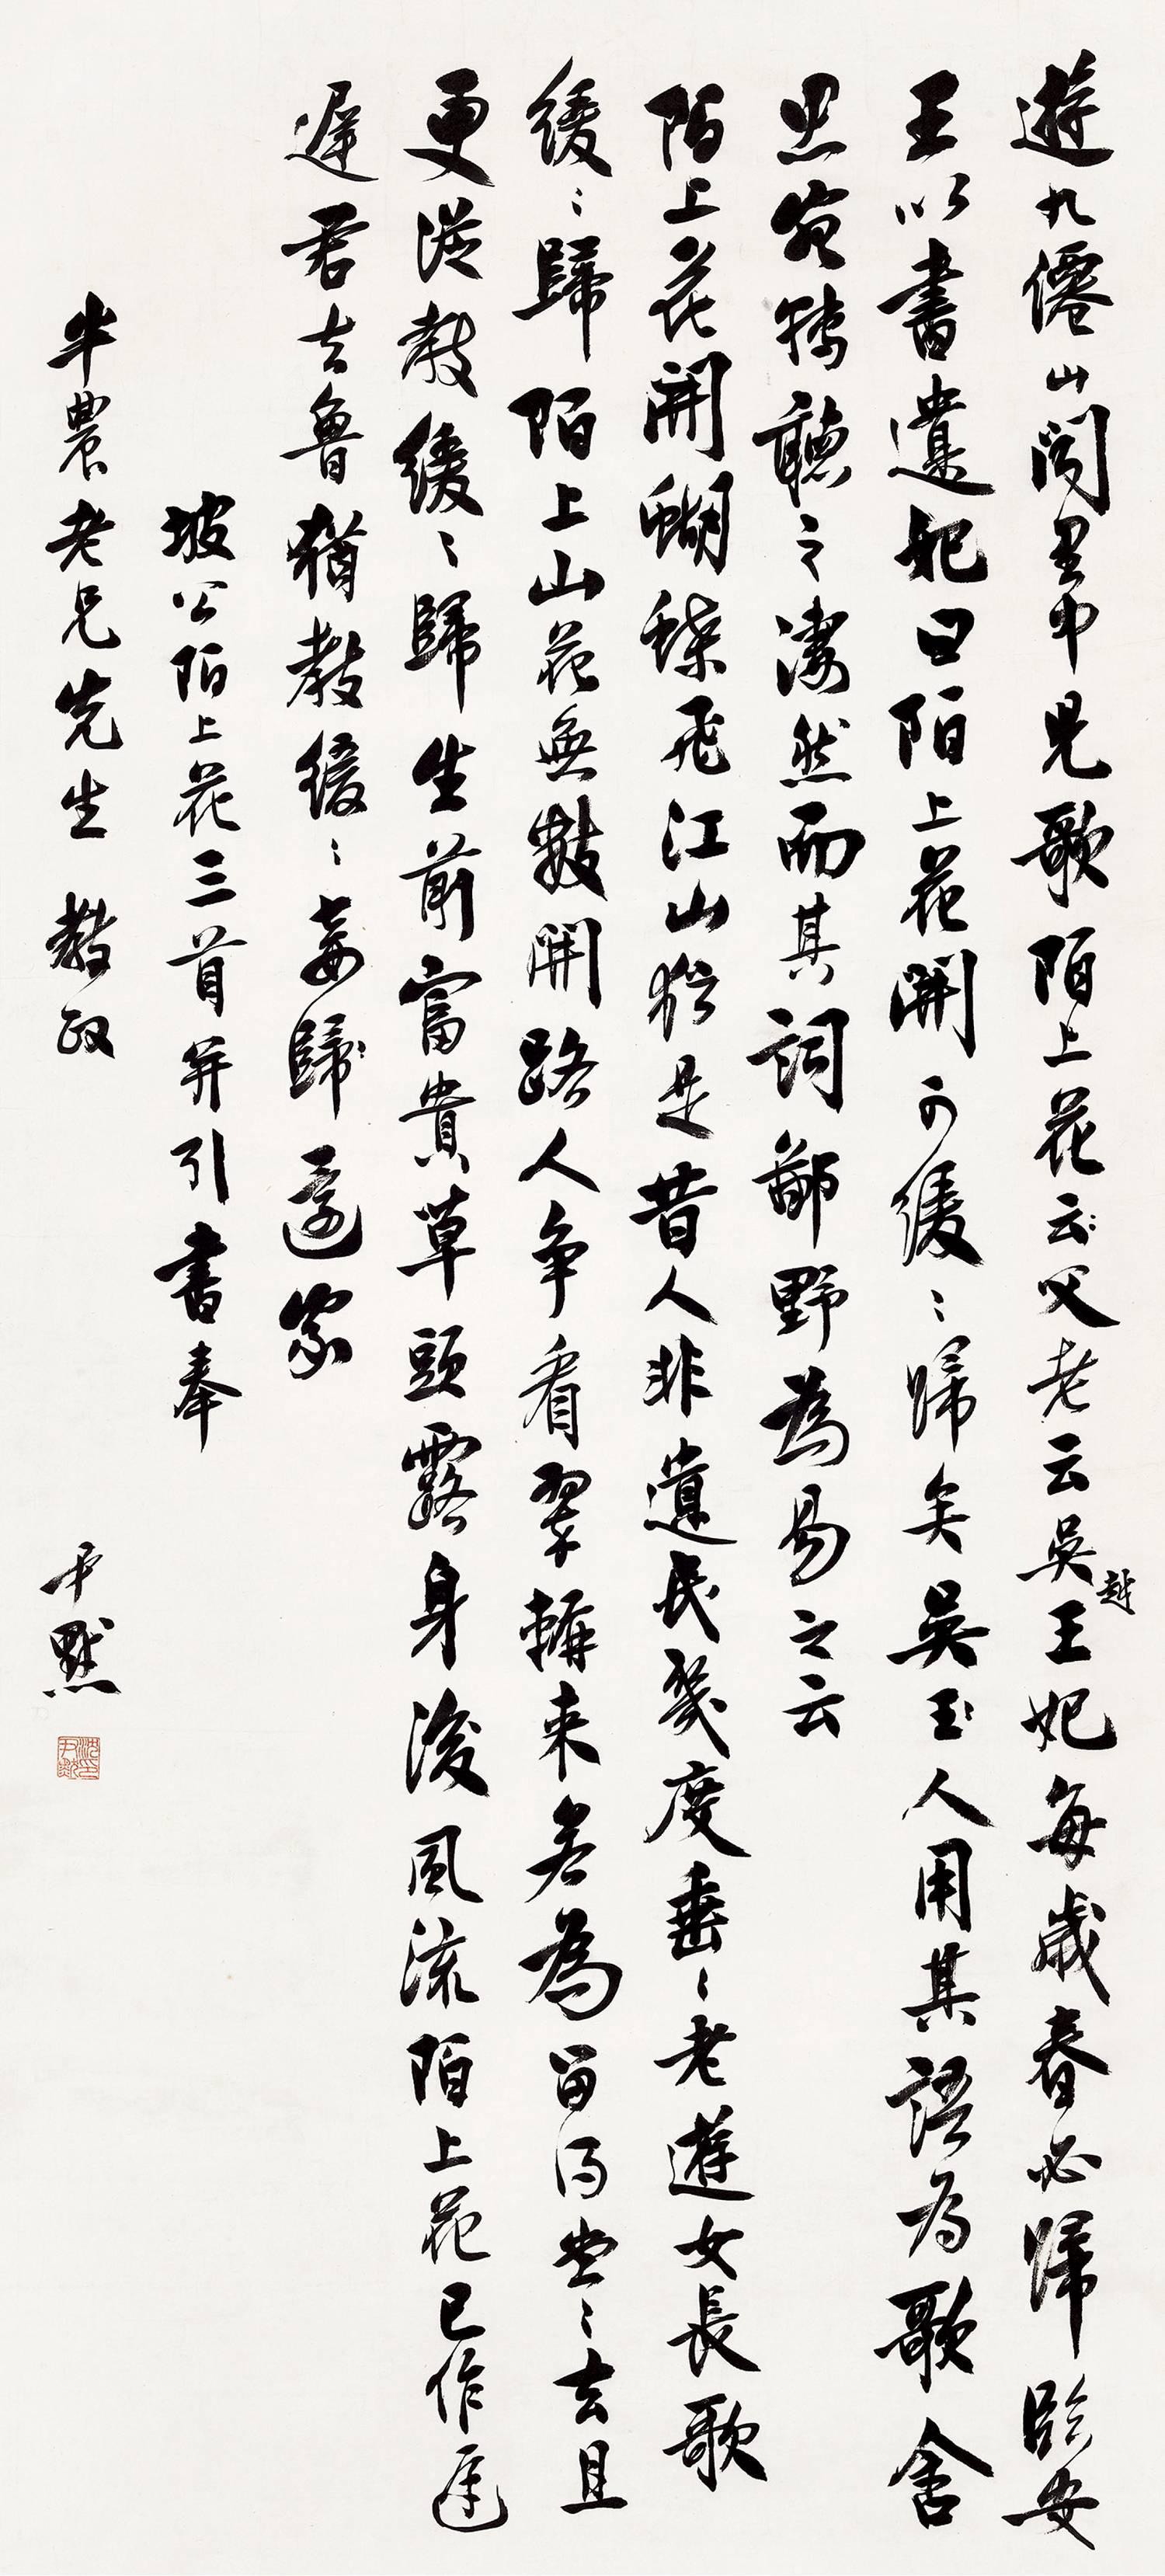 遊九僊山聞里中兒歌陌上花云父老云吳越王妃每歲春必歸臨安
王以書遺妃曰陌上花開可緩〻歸矣吳王人用其語為歌含
思宛轉聽之淒然而其詞鄙野為易之云
陌上花開蝴蝶飛江山猶是昔人非遺民幾度垂〻老遊女長歌
緩〻歸陌上山花無數開路人爭看翠軿来若為留得堂〻去且
更從教緩〻歸生前富貴草頭露身後風流陌上花已作遲
遲君去魯猶教緩〻妾歸還家
坡公陌上花三首并引書奉
半農老兄先生 教政
尹默
沈尹默印